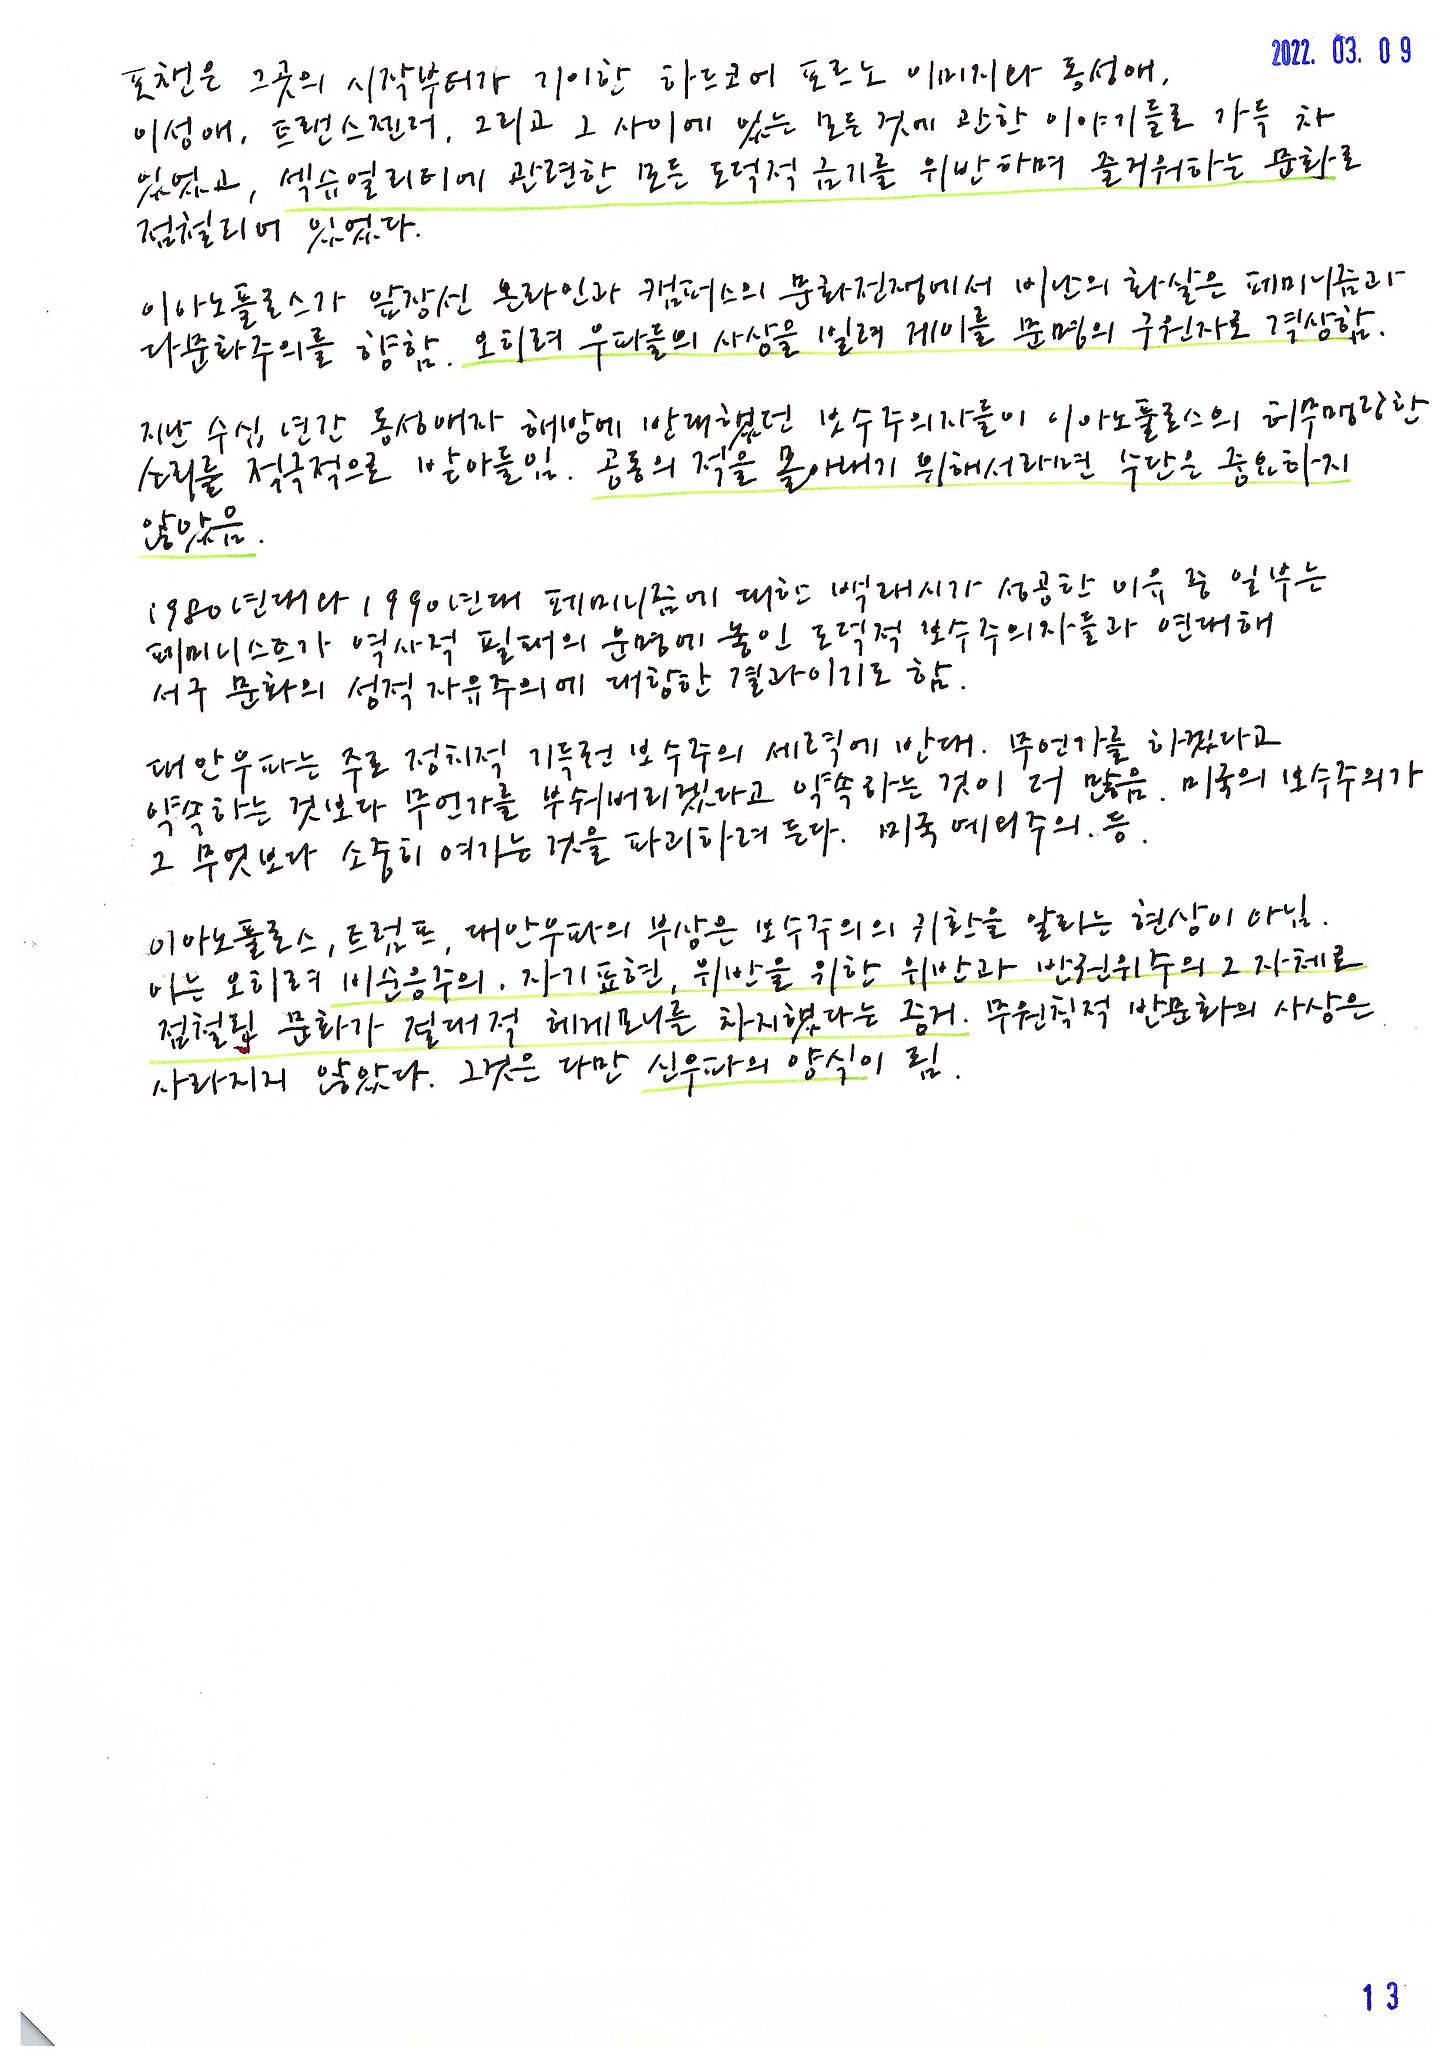 2022. 03. 09
포챈은 그곳의 시작부터가 기이한 하드코어 포르노 이미지와 동성애,
이성애, 트랜스젠더, 그리고 그 사이에 있는 모든 것에 관한 이야기들로 가득 차
있었고, 섹슈얼리티에 관련한 모든 도덕적 금기를 위반하며 즐거워하는 문화로
점철되어 있었다.
이아노풀로스가 앞장선 온라인과 캠퍼스의 문화전쟁에서 비난의 화살은 페미니즘과
다문화주의를 향함. 오히려 우파들의 사상을 빌려 게이를 문명의 구원자로 격상함.
지난 수십 년간 동성애자 해방에 반대했던 보수주의자들이 이아노풀로스의 허무맹랑한
소리를 적극적으로 받아들임. 공동의 적을 몰아내기 위해서라면 수단은 중요하지
않았음.
1980년대와 1990년대 페미니즘에 대한 백래시가 성공한 이유 중 일부는
페미니스트가 역사적 필패의 운명에 놓인 도덕적 보수주의자들과 연대해
서구 문화의 성적 자유주의에 대항한 결과이기도 함.
대안우파는 주로 정치적 기득권 보수주의 세력에 반대. 무언가를 하겠다고
약속하는 것보다 무언가를 부숴버리겠다고 약속하는 것이 더 많음. 미국의 보수주의가
그 무엇보다 소중히 여기는 것을 파괴하려 든다. 미국 예외주의. 등.
이아노풀로스, 트럼프, 대안우파의 부상은 보수주의의 귀환을 알리는 현상이 아님.
이는 오히려 비순응주의. 자기표현, 위반을 위한 위반과 반권위주의 그 자체로
점철된 문화가 절대적 헤게모니를 차지했다는 증거. 무원칙적 반문화의 사상은
사라지지 않았다. 그것은 다만 신우파의 양식이 됨.
13